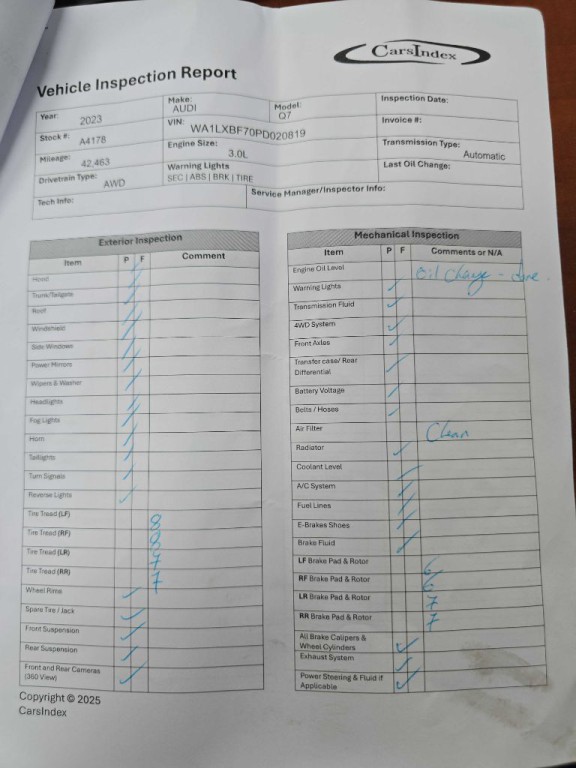 CarsIndex
Vehicle Inspection Report
Year: 2023 Make: AUDI Model: Q7 Inspection Date:
Stock #: A4178 VIN: WA1LXBF70PD020819 Invoice #:
Mileage: 42,463 Engine Size: 3.0L Transmission Type: Automatic
Drivetrain Type: AWD Warning Lights SEC | ABS | BRK | TIRE Last Oil Change:
Tech Info: Service Manager/Inspector Info:
Exterior Inspection
Item P F Comment
Hood ✓
Trunk/Tailgate ✓
Roof ✓
Windshield ✓
Side Windows ✓
Power Mirrors ✓
Wipers & Washer ✓
Headlights ✓
Fog Lights ✓
Horn ✓
Taillights ✓
Turn Signals ✓
Reverse Lights ✓
Tire Tread (LF) 8
Tire Tread (RF) 8
Tire Tread (LR) 7
Tire Tread (RR) 7
Wheel Rims ✓
Spare Tire / Jack ✓
Front Suspension ✓
Rear Suspension ✓
Front and Rear Cameras (360 View) ✓
Mechanical Inspection
Item P F Comments or N/A
Engine Oil Level Oil change - done.
Warning Lights ✓
Transmission Fluid ✓
4WD System ✓
Front Axles ✓
Transfer case/ Rear Differential ✓
Battery Voltage ✓
Belts / Hoses ✓
Air Filter Clean
Radiator ✓
Coolant Level ✓
A/C System ✓
Fuel Lines ✓
E-Brakes Shoes ✓
Brake Fluid ✓
LF Brake Pad & Rotor 6
RF Brake Pad & Rotor 6
LR Brake Pad & Rotor 7
RR Brake Pad & Rotor 7
All Brake Calipers & Wheel Cylinders ✓
Exhaust System ✓
Power Steering & Fluid if Applicable ✓
Copyright © 2025
CarsIndex